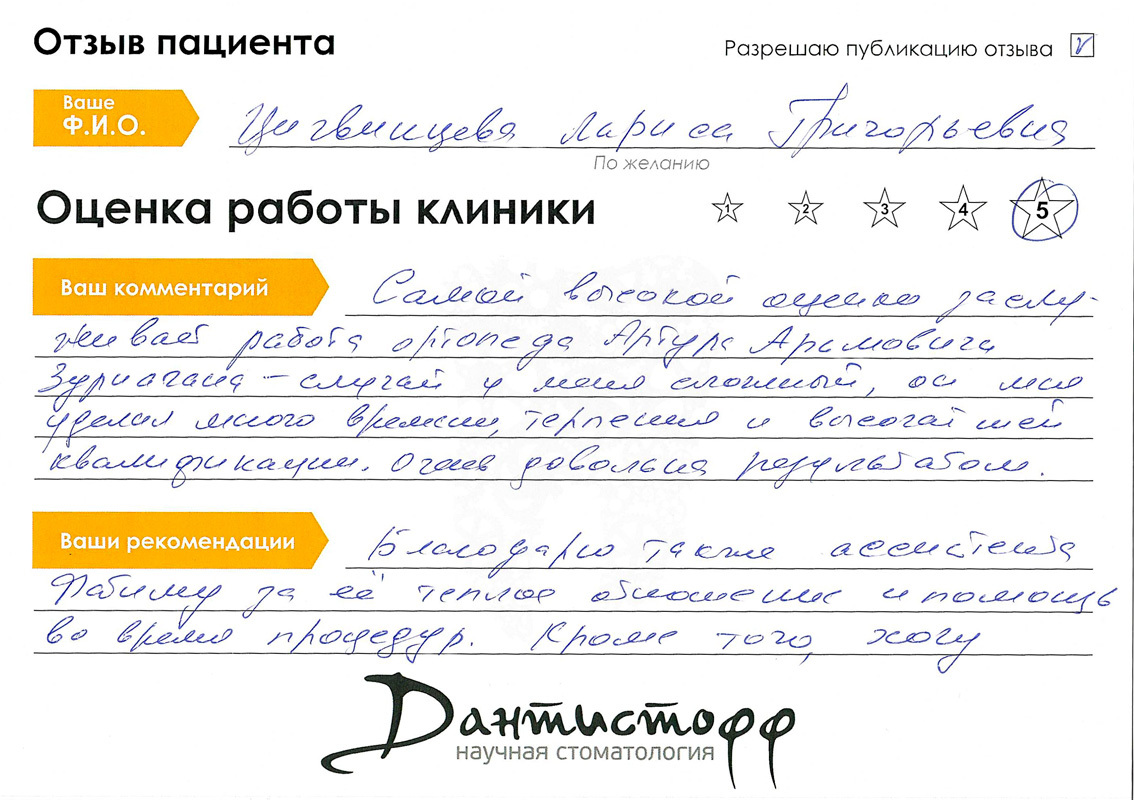 Отзыв пациента
Разрешаю публикацию отзыва V
Ваше Ф.И.О.
Цигвинцева Лариса Григорьевна
По желанию
Оценка работы клиники
1 2 3 4 5
Ваш комментарий
Самой высокой оценки заслу-
живает работа ортопеда Артура Арамовича
Зурнагана – случай у меня сложный, он мне
уделил много времени, терпения и высочайшей
квалификации. Очень довольна результатом.
Ваши рекомендации
Благодарю также ассистента
Фатиму за её теплое отношение и помощь
во время процедур. Кроме того, хочу
Дантистофф
научная стоматология